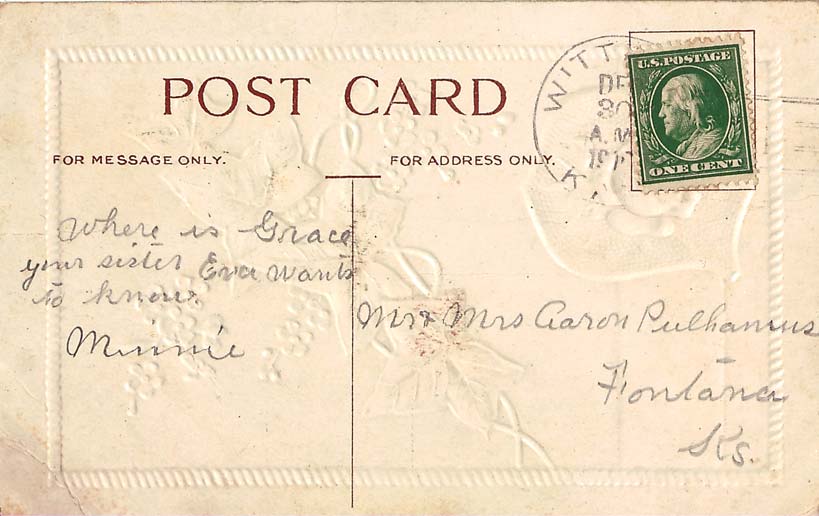 POST CARD
FOR MESSAGE ONLY.
FOR ADDRESS ONLY.
WITT
DE
30
A.M
191
K
U.S. POSTAGE
ONE CENT
Where is Grace
your sister Eva wants
to know
Minnie
Mr & Mrs Aaron Pulhamus
Fontana
Ks.